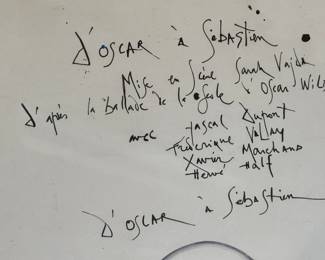 d'OSCAR à SébaSTien
Mise en Scène Sarah Vajda
d'après la ballade de la geole d'Oscar Wil
avec Pascal Dupont
Frédérique Vallay
Xavier Marchand
Hervé Half
d'OSCAR à SébaSTien